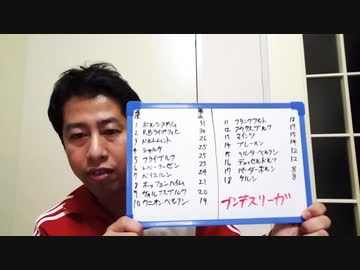 1 ボルシアMG 31
2 RBライプツィヒ 30
3 ドルトムント 26
4 シャルケ 25
5 フライブルク 25
6 レバークーゼン 25
7 バイエルン 24
8 ホッフェンハイム 21
9 ヴォルフスブルク 20
10 ウニオンベルリン 19
11 フランクフルト 18
12 アウクスブルク 17
13 マインツ 15
14 ブレーメン 14
15 ヘルタベルリン 12
16 デュッセルドルフ 12
17 パーダーボルン 8
18 ケルン 8
ブンデスリーガ